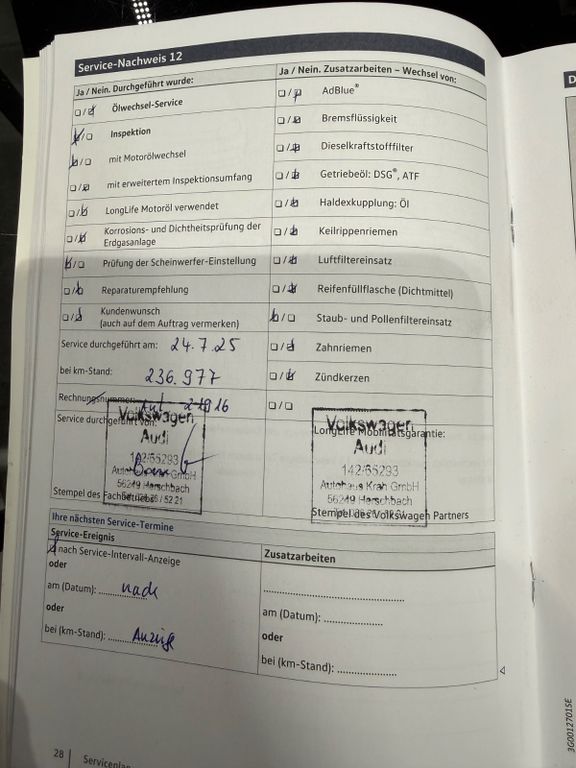 Service-Nachweis 12
Ja / Nein. Durchgeführt wurde:
Ölwechsel-Service
Inspektion
mit Motorölwechsel
mit erweitertem Inspektionsumfang
LongLife Motoröl verwendet
Korrosions- und Dichtheitsprüfung der
Erdgasanlage
Prüfung der Scheinwerfer-Einstellung
Reparaturempfehlung
Kundenwunsch
(auch auf dem Auftrag vermerken)
Service durchgeführt am: 24.7.25
bei km-Stand: 236.977
Rechnungsnummer:
Service durchgeführt von:
Volkswagen
Audi
142/65293
Autohaus Krah GmbH
56249 Herschbach
Stempel des Fachbetriebs
Ja / Nein. Zusatzarbeiten – Wechsel von:
AdBlue®
Bremsflüssigkeit
Dieselkraftstofffilter
Getriebeöl: DSG®, ATF
Haldexkupplung: Öl
Keilrippenriemen
Luftfiltereinsatz
Reifenfüllflasche (Dichtmittel)
Staub- und Pollenfiltereinsatz
Zahnriemen
Zündkerzen
LongLife Mobilitätsgarantie:
Volkswagen
Audi
142/65293
Autohaus Krah GmbH
56249 Herschbach
Stempel des Volkswagen Partners
Ihre nächsten Service-Termine
Service-Ereignis
nach Service-Intervall-Anzeige
oder
am (Datum): nach
oder
bei (km-Stand): Anzeige
Zusatzarbeiten
am (Datum):
oder
bei (km-Stand):
28
3G0012701SE